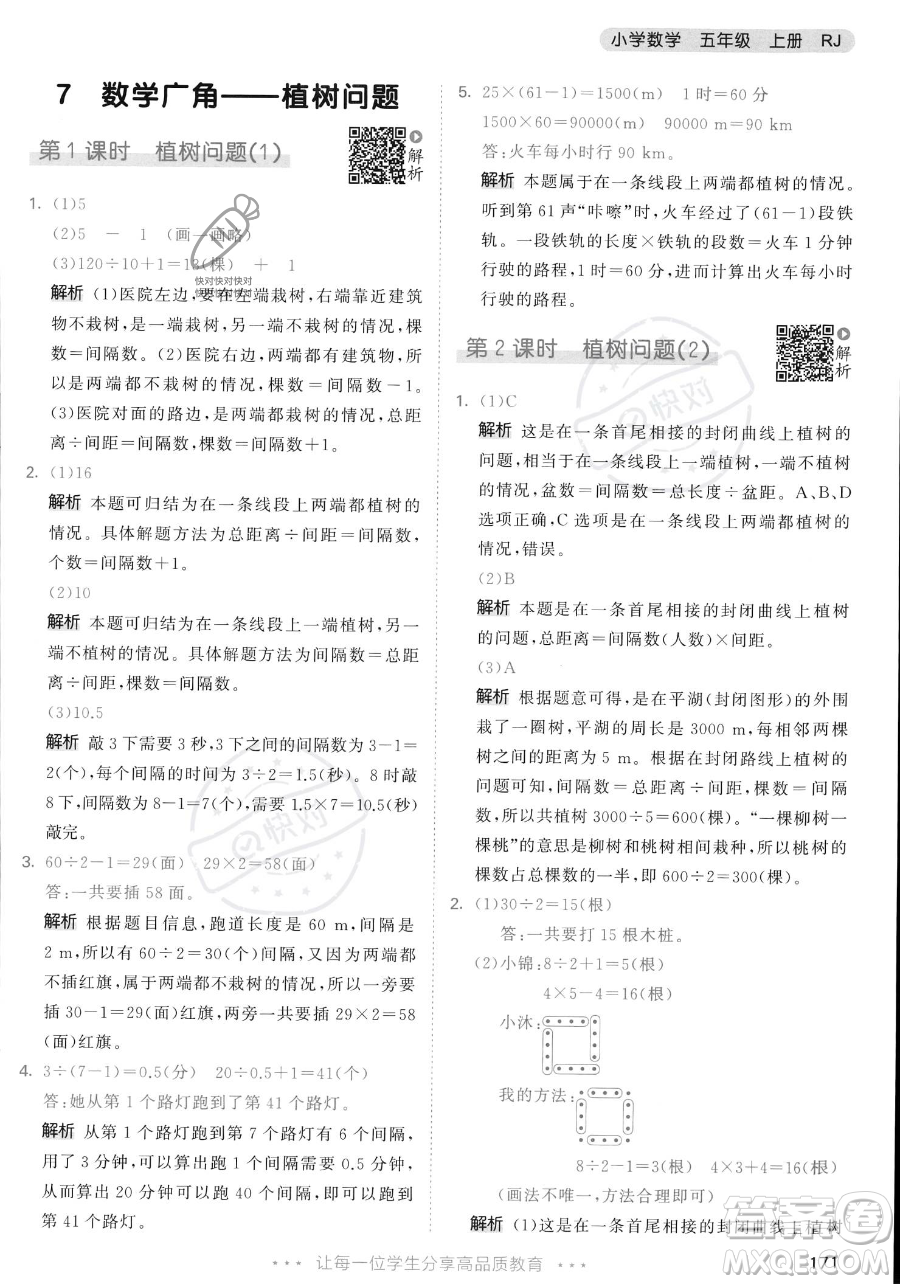 小学数学 五年级 上册 RJ
7 数学广角——植树问题
第1课时 植树问题(1)
解析
1. (1)5
(2)5 － 1 (画一画略)
(3)120÷10+1=13(棵) + 1
快对快对快对
解析 (1)医院左边,要在左端栽树,右端靠近建筑
物不栽树,是一端栽树,一端不栽树的情况,棵
数=间隔数。(2)医院右边,两端都有建筑物,所
以是两端都不栽树的情况,棵数=间隔数-1。
(3)医院对面的路边,两端都栽树的情况,总距
离÷间距=间隔数,棵数=间隔数+1。
2. (1)16
解析 本题可归结为在一条线段上两端都植树的
情况。具体解题方法为总距离÷间距=间隔数,
个数=间隔数+1。
(2)10
解析 本题可归结为在一条线段上一端植树,另
一端不植树的情况。具体解题方法为总距
离÷间距=间隔数,棵数=间隔数。
(3)10.5
解析 敲3下需要3秒,3下之间的间隔数为3-1=
2(个),每个间隔的时间为3÷2=1.5(秒)。8时敲
8下,间隔数为8-1=7(个),需要1.5×7=10.5(秒)
敲完。
3. 60÷2-1=29(面) 29×2=58(面)
答:一共要插58面。
解析 根据题目信息,跑道长度是60 m,间隔是
2 m,所以有60÷2=30(个)间隔,又因为两端都
不插红旗,属于两端都不栽树的情况,所以一旁有
30-1=29(面)红旗,两旁一共要插29×2=58
(面)红旗。
4. 3÷(7-1)=0.5(分) 20÷0.5+1=41(个)
答:她从第1个路灯跑到了第41个路灯。
解析 从第1个路灯跑到第7个路灯有6个间隔,
用了3分钟,可以算出跑1个间隔需要0.5分钟,
从而算出20分钟可以跑40个间隔,所以跑到了
第41个路灯。
5. 25×(61-1)=1500(m) 1时=60分
1500×60=90000(m) 90000 m=90 km
答:火车每小时行90 km。
解析 本题属于在一条线段上两端都植树的情况。
听到第61声“咔嚓”时,火车行驶了(61-1)段铁
轨。一段铁轨的长度×铁轨的段数=火车1分钟
行驶的路程,进而计算出火车每小时
行驶的路程。
第2课时 植树问题(2)
解析
1. (1)C
解析 这是在一条首尾相接的封闭曲线上植树的
问题,相当于在一条线段上一端植树,一端不植树
的情况,盆数=间隔数=总长度÷盆距。A、B、D
选项正确,C选项是在一条线段上两端都植树的
情况,错误。
(2)B
解析 本题是在一条首尾相接的封闭曲线上植树
的问题,总距离=间隔数(人数)×间距。
(3)A
解析 根据题意可得,是在平湖(封闭图形)的外围
栽了一圈树,平湖的周长是3000 m,每相邻两棵
树之间的距离是5 m。根据在封闭路线上植树的
问题可知,间隔数=总长度÷间距,棵数=间隔
数,所以共植树3000÷5=600(棵)。“一棵柳树一
棵桃”的意思是柳树和桃树间隔种植,所以柳树和
桃树各占总棵数的一半,即600÷2=300(棵)。
2. (1)30÷2=15(根)
答:一共要打15根木桩。
(2)小锦:8÷2+1=5(根)
4×5-4=16(根)
小沐:
我的方法:
8÷2-1=3(根) 4×3+4=16(根)
(画法不唯一,方法合理即可)
解析 (1)这是在一条首尾相接的封闭曲线上植树
让每一位学生分享高品质教育
171
快对
快对
答案圈